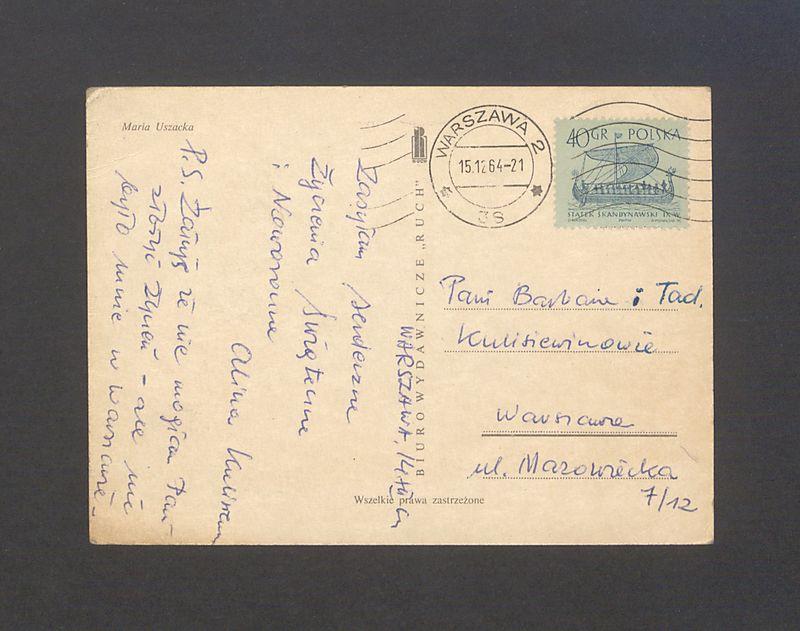 Maria Uszacka
Zasyłam serdeczne
Życzenia Świąteczne
i Noworoczne
Alina
P.S. Żałuję że nie mogłam Pań
złożyć Życzeń - ale nie
było mnie w Warszawie -
BIURO WYDAWNICZE „RUCH"
RUCH
WARSZAWA,
Wszelkie prawa zastrzeżone
WARSZAWA 2
15.12.64-21
40 GR POLSKA
STATEK SKANDYNAWSKI IX W.
Pani Barbara i Tad.
Kulisiewiczowie
Warszawa
ul. Mazowiecka
7/12